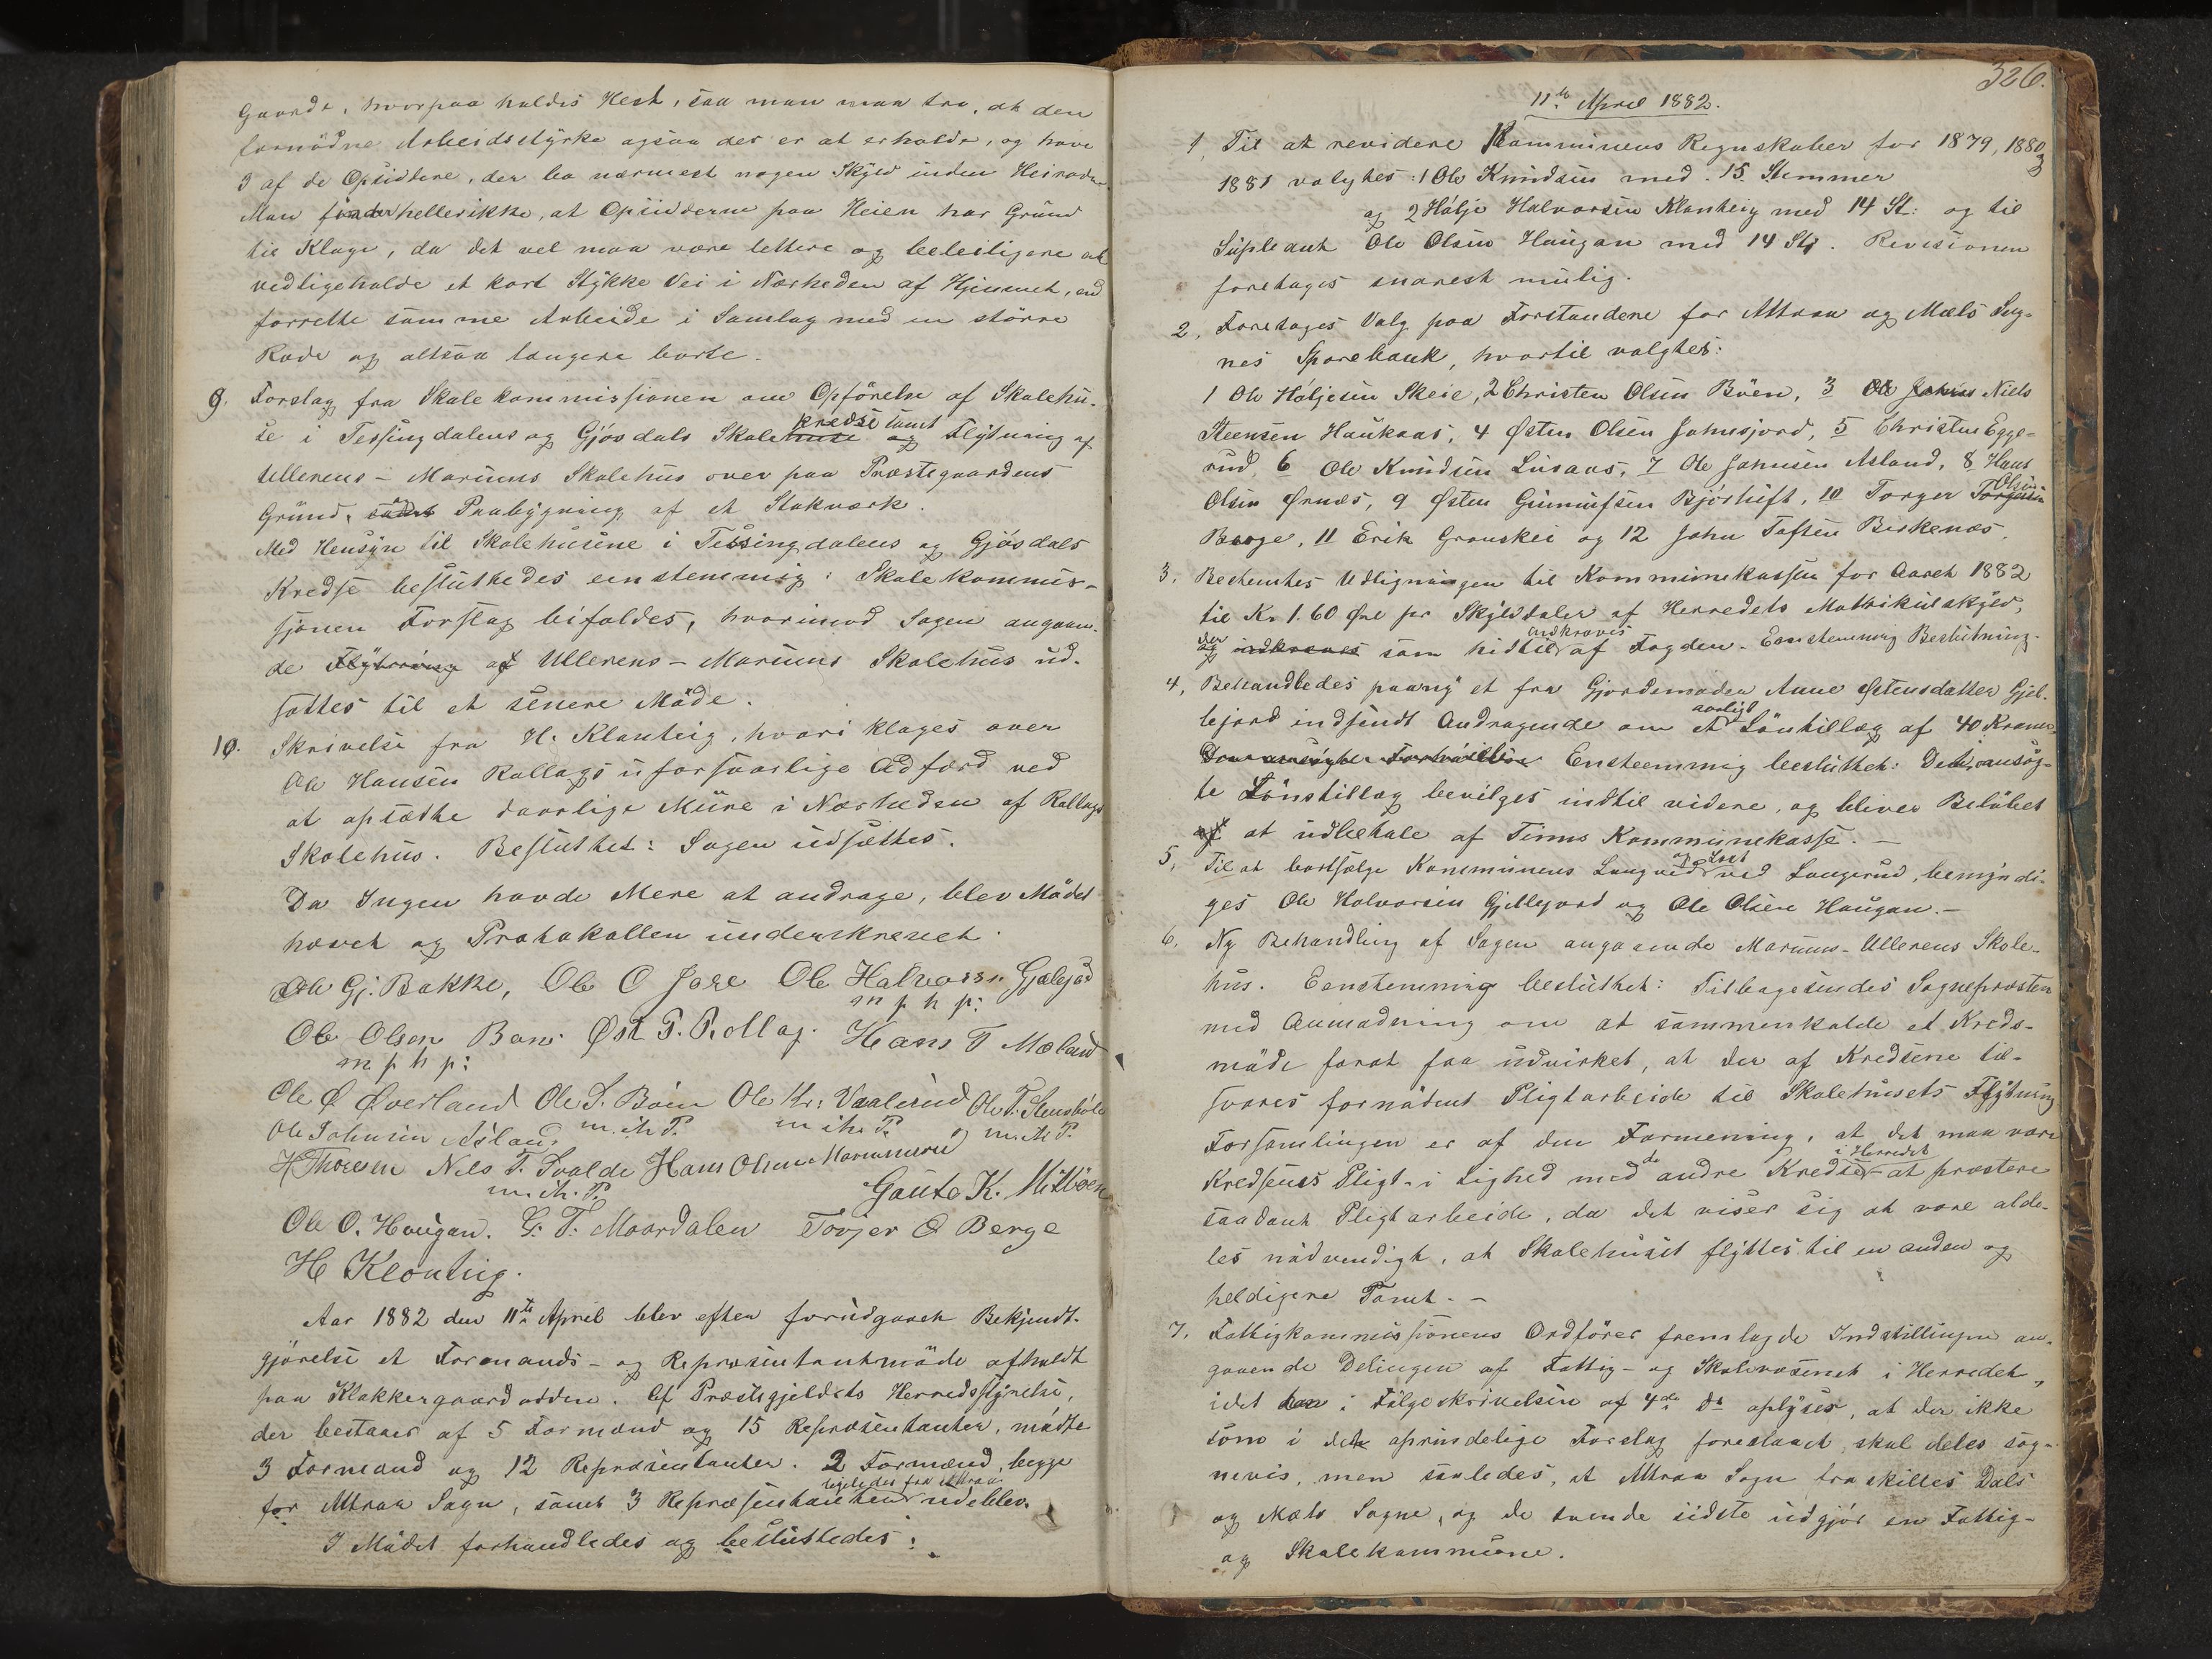 Gaarde, hvorpaa holdes Hest, saa man maa tro, at den
fornødne Arbeidsstyrke ogsaa der er at erholde, og have
3 af de Opsiddere, der bo nærmest nogen Skyld inden Heiroden.
Man finder heller ikke, at Opsidderne paa Heien har Grund
til Klage, da det vel maa være lettere og beleiligere at
vedligeholde et kort Stykke Vei i Nærheden af Hjemmet, end
forrette samme Arbeide i Samlag med en større
Rode og altsaa længere borte.
9. Forslag fra Skolekommissionen om Opførelse af Skolehu-
se i Tessingdalens og Gjøsdals Skolekredse samt Flytning af
Ullerens-Mariums Skolehus over paa Præstegaardens
Grund, og Paabygning af et Stokværk.
Med Hensyn til Skolehusene i Tessingdalens og Gjøsdals
Kredse besluttedes eenstemmig: Skolekommis-
sjonen Forslag bifaldes, hvorimod Sagen angaaen-
de Flytning af Ullerens-Mariums Skolehus ud-
sattes til et senere Møde.
10. Skrivelse fra H. Klonteig, hvori klages over
Ole Hansen Rollags uforsvarlige Adfærd ved
at opsætte daarlige Mure i Nærheden af Rollags
Skolehus. Besluttet: Sagen udsættes.
Da Ingen havde Mere at andrage, blev Mødet
hævet og Protokollen underskrevet.
Ole Gj. Bakke, Ole O Jore Ole Halvorsen Gjælejord
m p h p:
Ole Olsen Bøn. Øst T. Rollag. Hans T Mæland
m p h p:
Ole Ø Øverland Ole S. Bøen Ole Kr: Vaalerud Ole T. Stensbøle
Ole Johnsen Asland m. ih P. m ih. P. og m. ih P.
H Thoresen Nels T. Svalde Hans Olsen Mariumeru
m. ih. P. Gaute K. Mitbøen
Ole O. Hougan. G. T. Maardalen Torjer O Berge
H Klonteig.
Aar 1882 den 11te April blev efter forudgaaet Bekjendt-
gjørelse et Formands- og Repræsentantmøde afholdt
paa Klokkergaardodden. Af Præstegjeldets Herredsstyrelse,
der bestaaer af 5 Formænd og 15 Repræsentanter, mødte
3 Formænd og 12 Repræsentanter. 2 Formænd, begge
for Attraa Sogn, samt 3 Repræsentanter ligeledes fra Attraa udeblev.
I Mødet forhandledes og besluttedes:
326.
11te April 1882.
1, Til at revidere Kommunens Regnskaber for 1879, 1880
1881 valgtes: 1 Ole Knudsen med 15 Stemmer
og 2 Hølje Halvorsen Klonteig med 14 St: og til
Supleant Ole Olsen Haugan med 14 St. Revisionen
foretages snarest mulig.
2, Foretoges Valg paa Forstandere for Attraa og Mæls Sog-
nes Sparebank, hvortil valgtes:
1 Ole Høljesen Skeie, 2 Christen Olsen Bøen, 3 Niels
Steensen Haukaas, 4 Østen Olsen Johnsjord, 5 Christen Egge-
rud, 6 Ole Knudsen Lusaas, 7 Ole Johnsen Asland, 8 Hans
Olsen Ørnæs, 9 Østen Gunnufsen Bjørtuft, 10 Torger Olsen
Berge, 11 Erik Gronskei og 12 John Tofsen Berkenæs.
3, Bestemtes Udligningen til Kommunekassen for Aaret 1882
til Kr 1.60 Øre pr Skylddaler af Herredets Matrikulskyld,
der som hidtil indkræves af Fogden. Eenstemmig Beslutning.
4, Behandledes paany et fra Gjordemoder Anne Østensdatter Gjel-
lejord indsendt Andragende om et aarligt Løntillæg af 40 Kroner.
Eenstemmig besluttet: Det ansøg-
te Lønstillæg bevilges indtil videre, og bliver Beløbet
at udbetale af Tinns Kommunekasse. -
5, Til at bortsælge Kommunens Langved og Lost ved Langerud, bemyndi-
ges Ole Halvorsen Gjellejord og Ole Olsen Haugan. -
6, Ny Behandling af Sagen angaaende Mariums-Ullerens Skole-
hus. Eenstemmig besluttet: Tilbagesendes Sognepræsten
med Anmodning om at sammenkalde et Kreds-
møde forat faa udvirket, at der af Kredsene til-
svares fornødent Pligtarbeide til Skolehusets Flytning
Forsamlingen er af den Formening, at det maa være
Kredsens Pligt - i Lighed med de andre Kredse i Herredet - at præstere
saadant Pligtarbeide, da det viser sig at være alde-
les nødvendigt, at Skolehuset flyttes til en anden og
heldigere Tomt. -
7, Fattigkommissionens Ordfører fremlagde Indstillingen an-
gaaende Delingen af Fattig- og Skolevæsenet i Herredet,
idet han i Følgeskrivelsen af 4de ds oplyser, at der ikke
som i det oprindelige Forslag foreslaaet, skal deles sog-
nevis, men saaledes, at Attraa Sogn fraskilles Dals
og Mæls Sogne, og de tvende sidste udgjør en Fattig-
og Skolekommune.